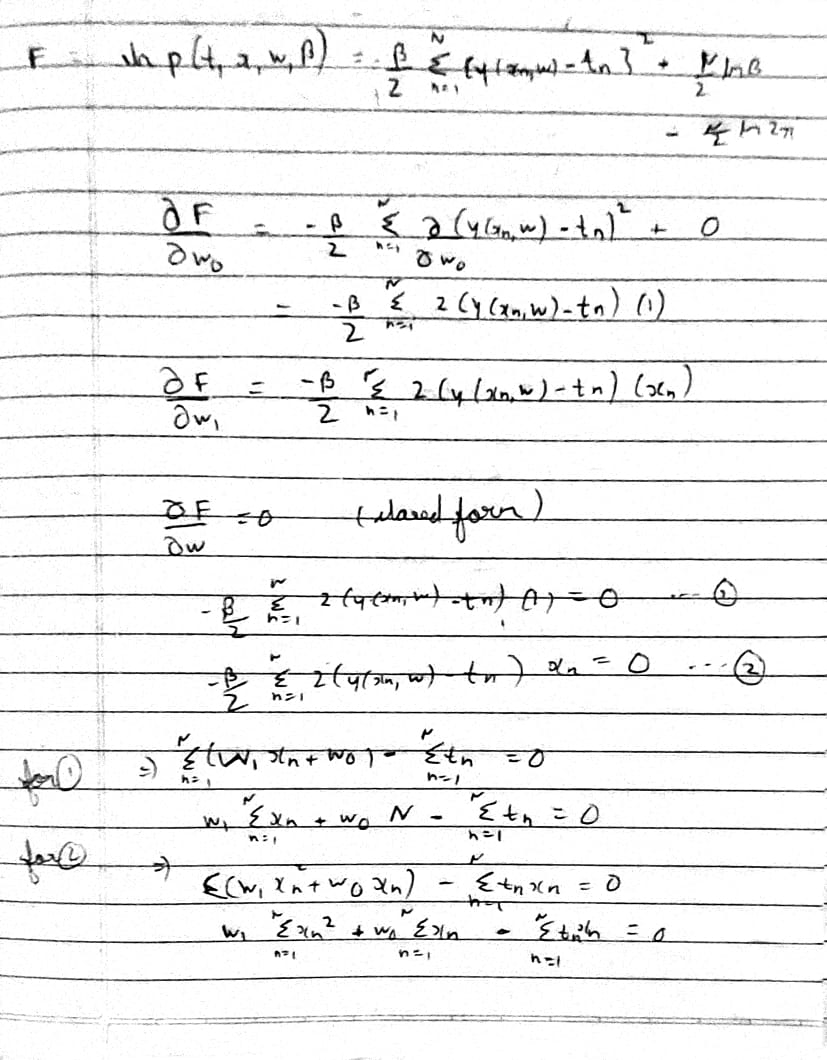 F = ln p(t, x, w, β) = -β/2 Σ_{n=1}^{N} {y(xn, w) - tn}² + N/2 ln β
- N/2 ln 2π
∂F/∂w₀ = -β/2 Σ_{n=1}^{N} ∂/∂w₀ (y(xn, w) - tn)² + 0
= -β/2 Σ_{n=1}^{N} 2 (y(xn, w) - tn) (1)
∂F/∂w₁ = -β/2 Σ_{n=1}^{N} 2 (y(xn, w) - tn) (xn)
∂F/∂w = 0 (closed form)
-β/2 Σ_{n=1}^{N} 2 (y(xn, w) - tn) (1) = 0 --- ①
-β/2 Σ_{n=1}^{N} 2 (y(xn, w) - tn) xn = 0 --- ②
for ① => Σ_{n=1}^{N} (w₁ xn + w₀) - Σ_{n=1}^{N} tn = 0
w₁ Σ_{n=1}^{N} xn + w₀ N - Σ_{n=1}^{N} tn = 0
for ② => Σ(w₁ xn² + w₀ xn) - Σ_{n=1}^{N} tn xn = 0
w₁ Σ_{n=1}^{N} xn² + w₀ Σ_{n=1}^{N} xn - Σ_{n=1}^{N} tn xn = 0